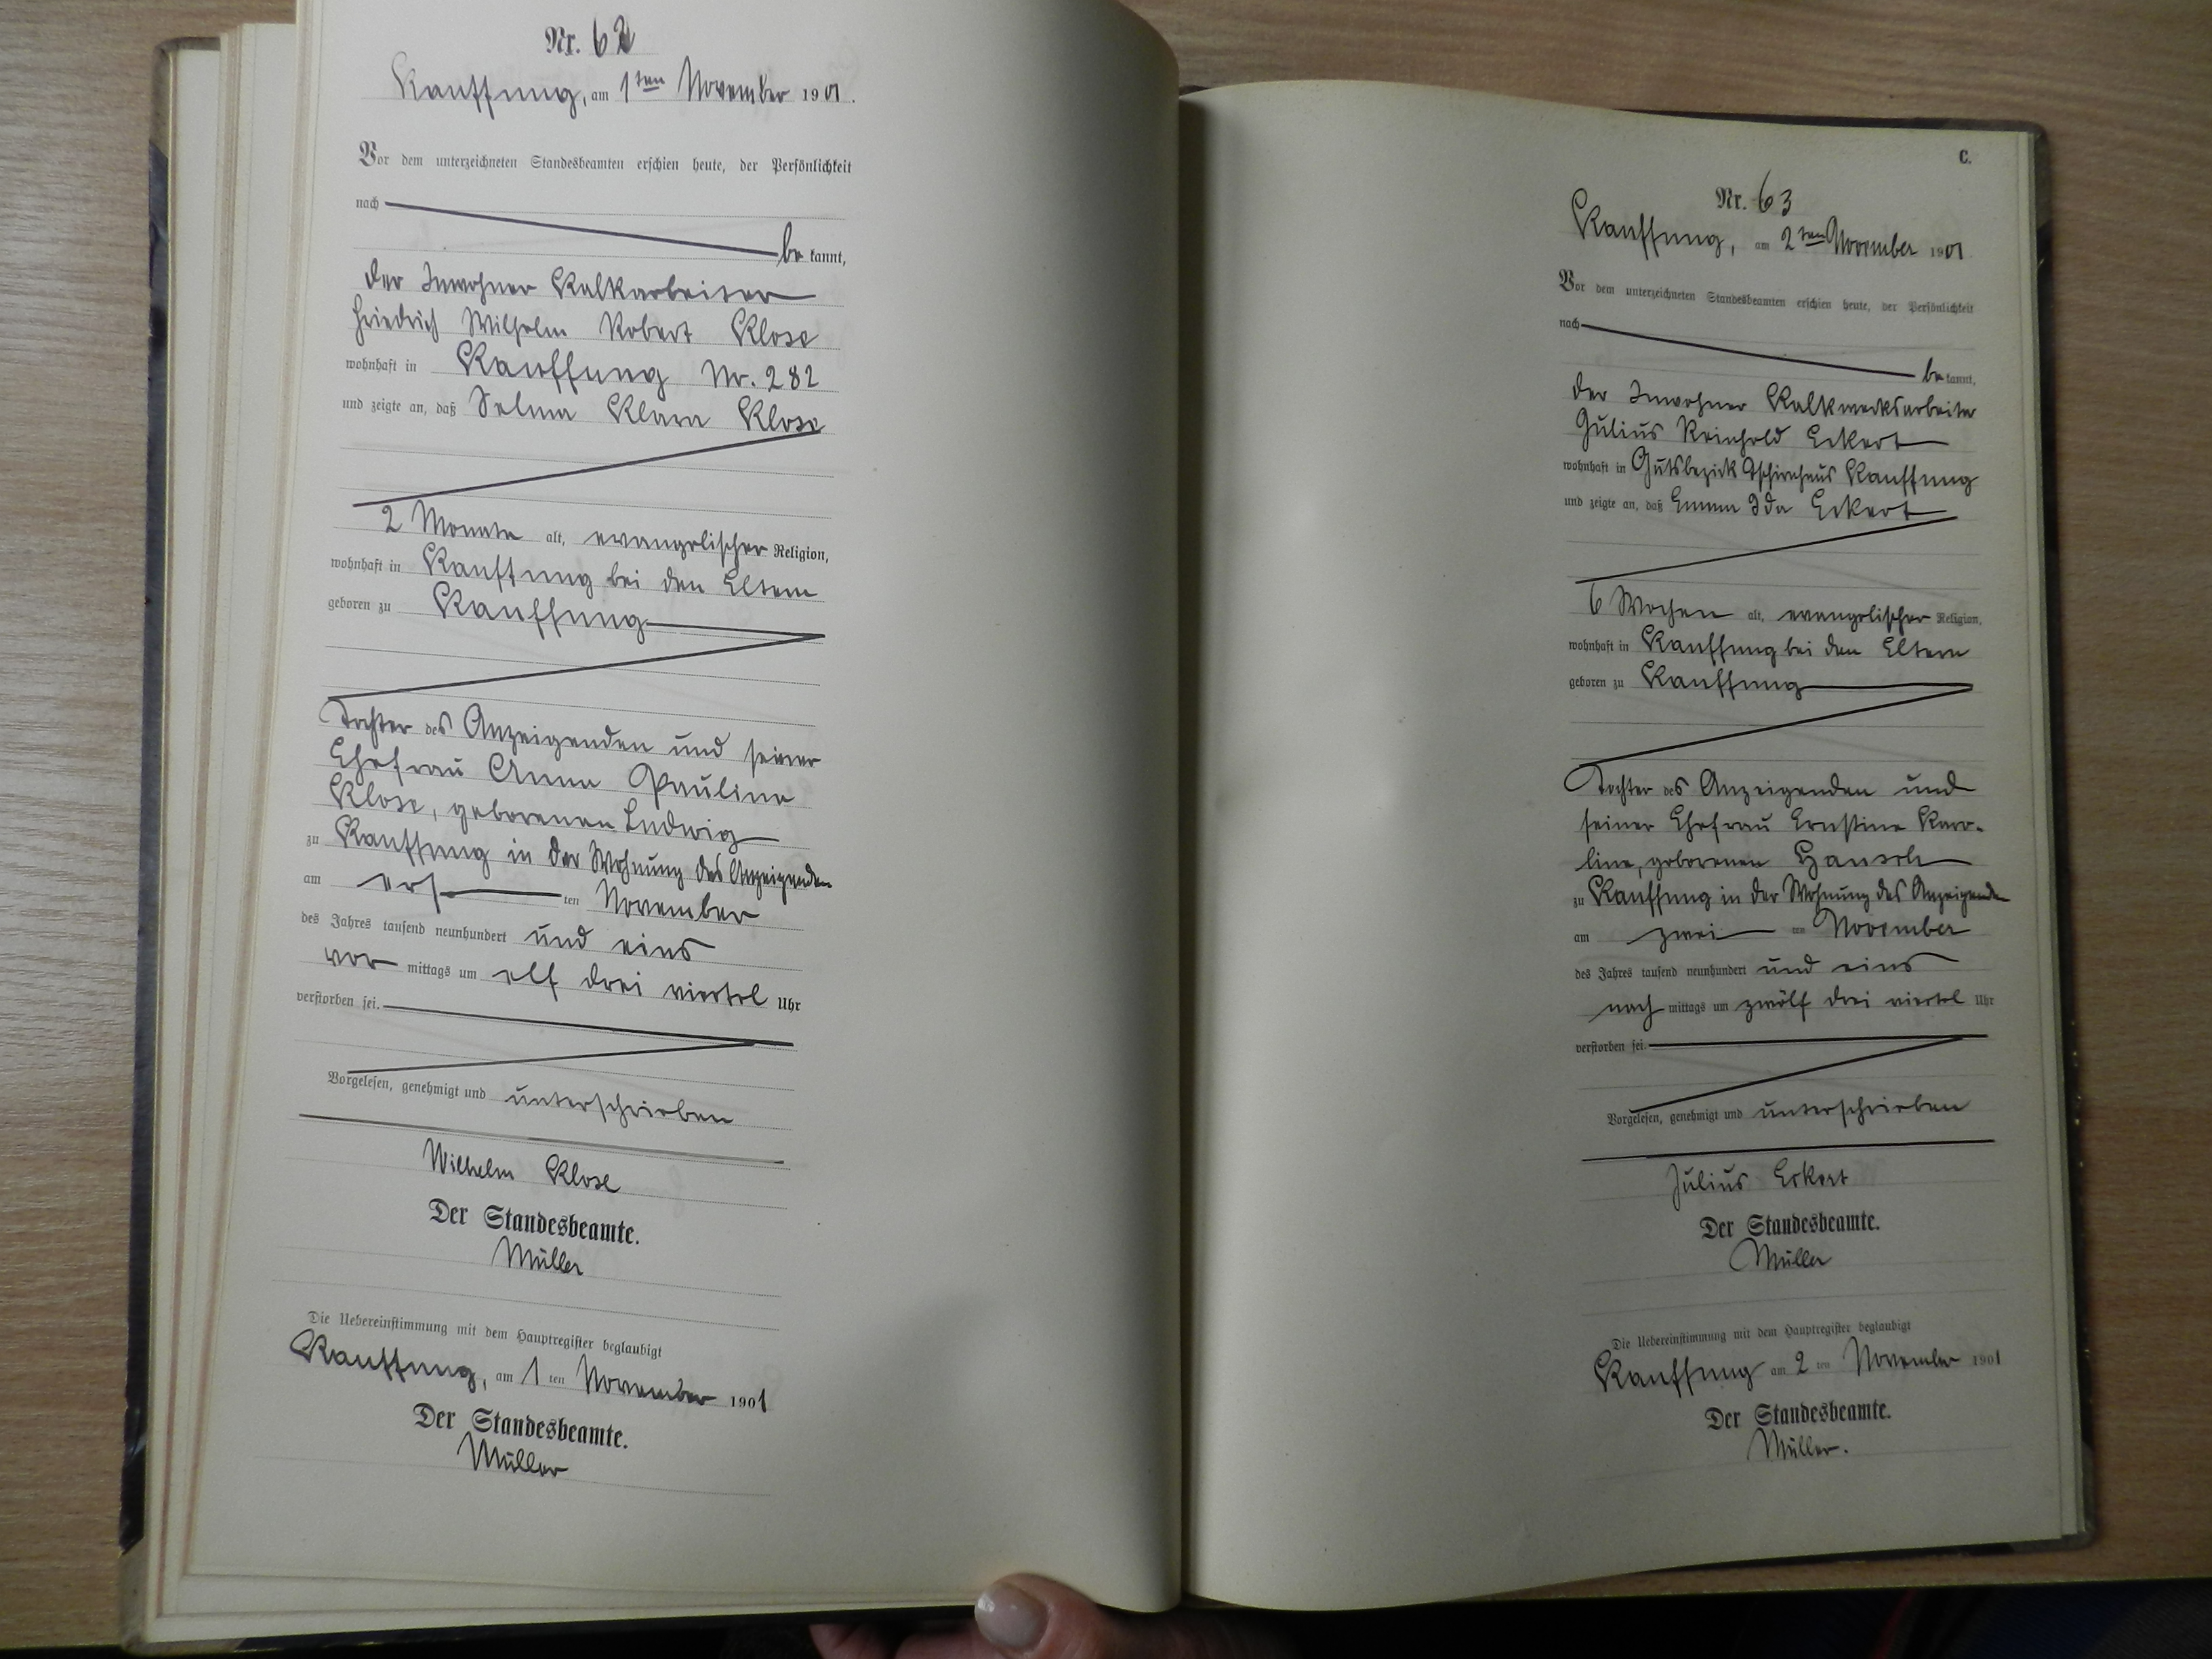 Nr. 62
Kauffung, am 1ten November 1901.
Vor dem unterzeichneten Standesbeamten erschien heute, der Persönlichkeit
nach
be kannt,
der Inwohner Kalkarbeiter
Friedrich Wilhelm Robert Klose
wohnhaft in Kauffung Nr. 282
und zeigte an, daß Selma Klara Klose
2 Monate alt, evangelischer Religion,
wohnhaft in Kauffung bei den Eltern
geboren zu Kauffung
Tochter des Anzeigenden und seiner
Ehefrau Anna Pauline
Klose, geborenen Ludwig
zu Kauffung in der Wohnung des Anzeigenden
am ersten November
des Jahres tausend neunhundert und eins
vor mittags um elf drei viertel Uhr
verstorben sei.
Vorgelesen, genehmigt und unterschrieben
Wilhelm Klose
Der Standesbeamte.
Müller
Die Uebereinstimmung mit dem Hauptregister beglaubigt
Kauffung, am 1 ten November 1901
Der Standesbeamte.
Müller
C.
Nr. 63
Kauffung, am 2ten November 1901
Vor dem unterzeichneten Standesbeamten erschien heute, der Persönlichkeit
nach
be kannt,
der Inwohner Kalkwerksarbeiter
Julius Reinhold Eckert
wohnhaft in Gutsbezirk Tschirnhaus Kauffung
und zeigte an, daß Emma Ida Eckert
6 Wochen alt, evangelischer Religion,
wohnhaft in Kauffung bei den Eltern
geboren zu Kauffung
Tochter des Anzeigenden und
seiner Ehefrau Ernstine Karo-
line, geborenen
zu Kauffung in der Wohnung des Anzeigenden
am zwei ten November
des Jahres tausend neunhundert und eins
nach mittags um zwölf drei viertel Uhr
verstorben sei.
Vorgelesen, genehmigt und unterschrieben
Julius Eckert
Der Standesbeamte.
Müller
Die Uebereinstimmung mit dem Hauptregister beglaubigt
Kauffung am 2 ten November 1901
Der Standesbeamte.
Müller.